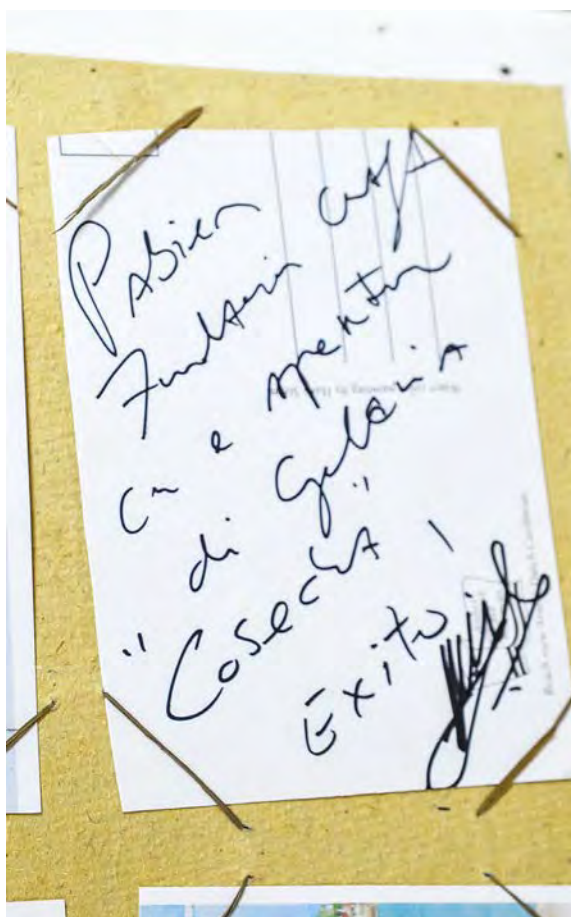 Pabien
Fundacion
cu e apertura
di Galeria
"Cosecha"
Exito!